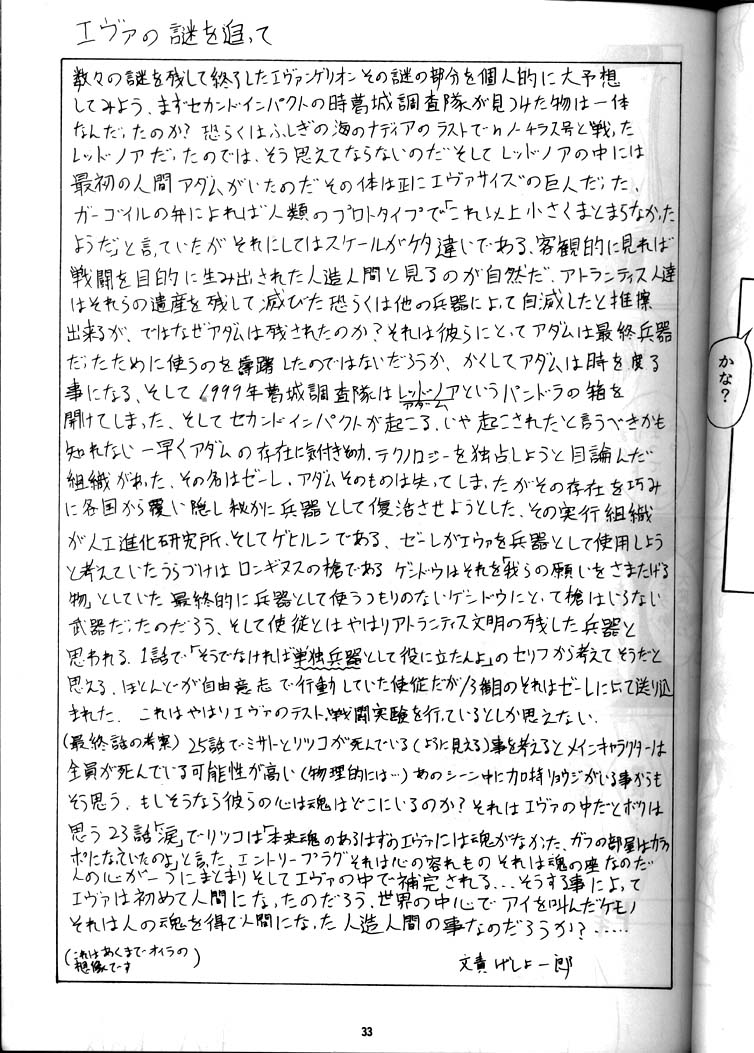 エヴァの謎を追って
数々の謎を残して終了したエヴァンゲリオンその謎の部分を個人的に大予想
してみよう、まずセカンドインパクトの時葛城調査隊が見つけた物は一体
なんだったのか？恐らくはふしぎの海のナディアのラストでnノーチラス号と戦った
レッドノアだったのでは、そう思えてならないのだそしてレッドノアの中には
最初の人間アダムがいたのだその体は正にエヴァサイズの巨人だった、
ガーゴイルの弁によれば人類のプロトタイプで「これ以上小さくまとまらなかった
ようだ」と言っていたがそれにしてはスケールがケタ違いである、客観的に見れば
戦闘を目的に生み出された人造人間と見るのが自然だ、アトランティス人達
はそれらの遺産を残して滅びた恐らくは他の兵器によって自滅したと推察
出来るが、ではなぜアダムは残されたのか？それは彼らにとってアダムは最終兵器
だったために使うのを躊躇したのではないだろうか、かくしてアダムは時を渡る
事になる、そして1999年葛城調査隊はレッドノアというパンドラの箱を
アダム
開けてしまった、そしてセカンドインパクトが起こる、いや起こされたと言うべきかも
知れない一早くアダムの存在に気付き始め、テクノロジーを独占しようと目論んだ
組織があった、その名はゼーレ、アダムそのものは失ってしまったがその存在を巧みに
に各国から覆い隠し秘かに兵器として復活させようとした、その実行組織
が人工進化研究所、そしてゲヒルンである、ゼーレがエヴァを兵器として使用しよう
と考えていたうらづけはロンギヌスの槍であるゲンドウはそれを「我らの願いをさまたげる
物」としていた最終的に兵器として使うつもりのないゲンドウにとって槍はいらない
武器だったのだろう、そして使徒とはやはりアトランティス文明の残した兵器と
思われる、1話で「そうでなければ単独兵器として役に立たんよ」のセリフから考えてそうだと
思える、ほとんどが自由意志で行動していた使徒だが13番目のそれはゼーレによって送り込
まれた、これはやはりエヴァのテスト、戦闘実験を行っているとしか思えない、
(最終話の考察) 25話でミサトとリツコが死んでいる(ように見える)事を考えるとメインキャラクターは
全員が死んでいる可能性が高い(物理的には…)あのシーン中に加持リョウジがいる事からも
そう思う、もしそうなら彼らの心は魂はどこにいるのか？それはエヴァの中だとボクは
思う23話「涙」でリツコは「本来魂のあるはずのエヴァには魂がなかった、ガフの部屋はカラッ
ポになっていたのよ」と言った、エントリープラグそれは心の容れものそれは魂の座なのだ
人の心が一つにまとまりそしてエヴァの中で補完される…そうする事によって
エヴァは初めて人間になったのだろう、世界の中心でアイを叫んだケモノ
それは人の魂を得て人間になった人造人間の事なのだろうか？……
(これはあくまでオイラの
想像です)
文責 げしょ一郎
33
かな？